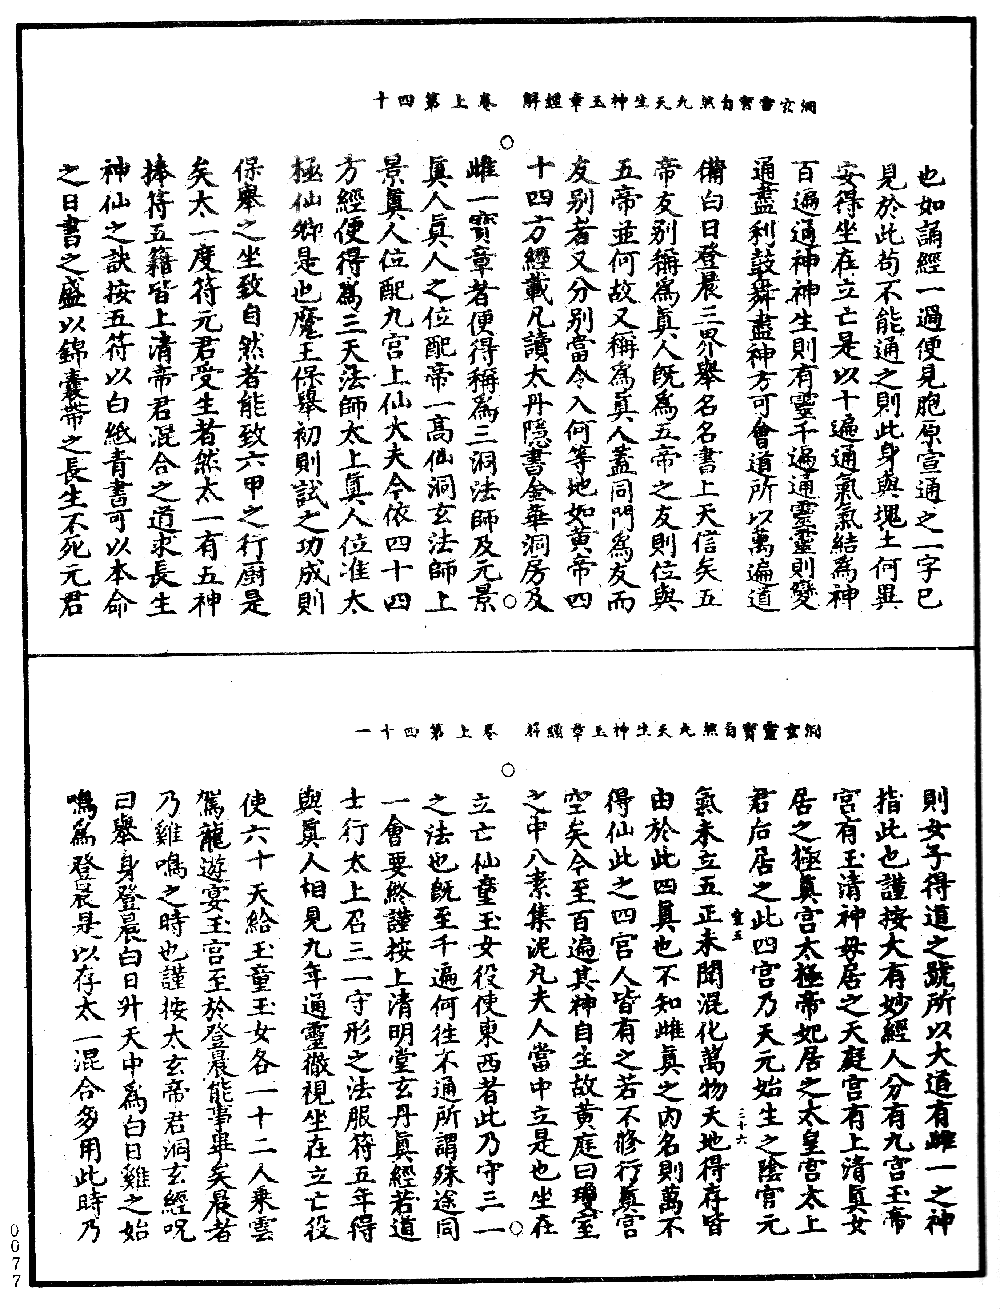 洞玄靈寶自然九天生神玉章經解　卷上第四十
也如誦經一過便見胞原宣通之一字已
見於此苟不能通之則此身與塊土何異
安得坐在立亡是以十遍通氣氣結為神
百遍通神神生則有靈千遍通靈靈則變
通盡利鼓舞盡神方可會道所以萬遍道
備白日登晨三界舉名名書上天信矣五
帝友别稱為眞人旣為五帝之友則位與
五帝並何故又稱為眞人蓋同門為友而
友别者又分别當令入何等地如黃帝四
十四方經載凡讀太丹隱書金華洞房及
雌一寶章者便得稱為三洞法師及元景
眞人眞人之位配帝一高仙洞玄法師上
景眞人位配九宫上仙大夫今依四十四
方經便得為三天法師太上眞人位准太
極仙卿是也魔王保舉初則試之功成則
保舉之坐致自然者能致六甲之行廚是
矣太一度符元君受生者然太一有五神
捧符五籍皆上清帝君混合之道求長生
神仙之訣按五符以白紙青書可以本命
之日書之盛以錦囊帶之長生不死元君
洞玄靈寶自然九天生神玉章經解　卷上第四十一
則女子得道之號所以大道有雌一之神
指此也謹按大有妙經人分有九宫玉帝
宫有玉清神母居之天庭宫有上清眞女
居之極眞宫太極帝妃居之太皇宫太上
君后居之此四宫乃天元始生之陰宫元
氣未立五正未開混化萬物天地得存皆
由於此四眞也不知雌眞之内名則萬不
得仙此之四宫人皆有之若不修行眞宫
空矣今至百遍其神自生故黃庭曰瓊室
之中八素集泥丸夫人當中立是也坐在
立亡仙童玉女役使東西者此乃守三一
之法也旣至千遍何徃不通所謂殊途同
一會要終謹按上清明堂玄丹眞經若道
士行太上召三一守形之法服符五年得
與眞人相見九年通靈徹視坐在立亡役
使六十天給玉童玉女各一十二人乘雲
駕龍遊宴玉宫至於登晨能事畢矣晨者
乃雞鳴之時也謹按太玄帝君洞玄經呪
曰舉身登晨白日升天中為白日雞之始
鳴為登晨是以存太一混合多用此時乃
三十六
0077